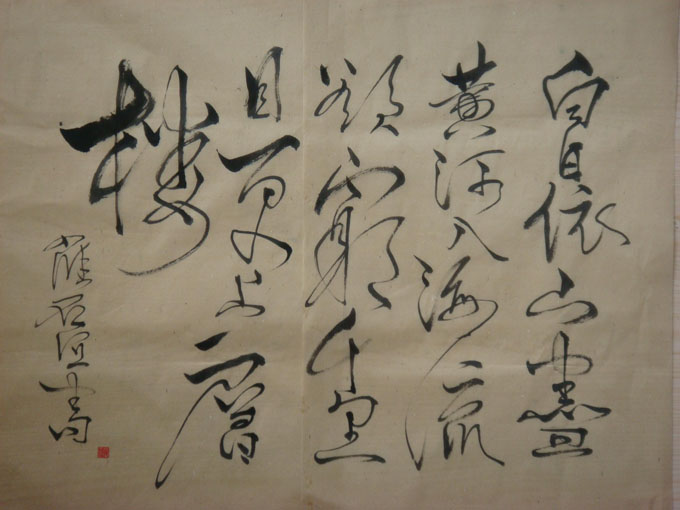 白日依山盡
黄河入海流
欲窮千里
目更上一層
楼
石
書